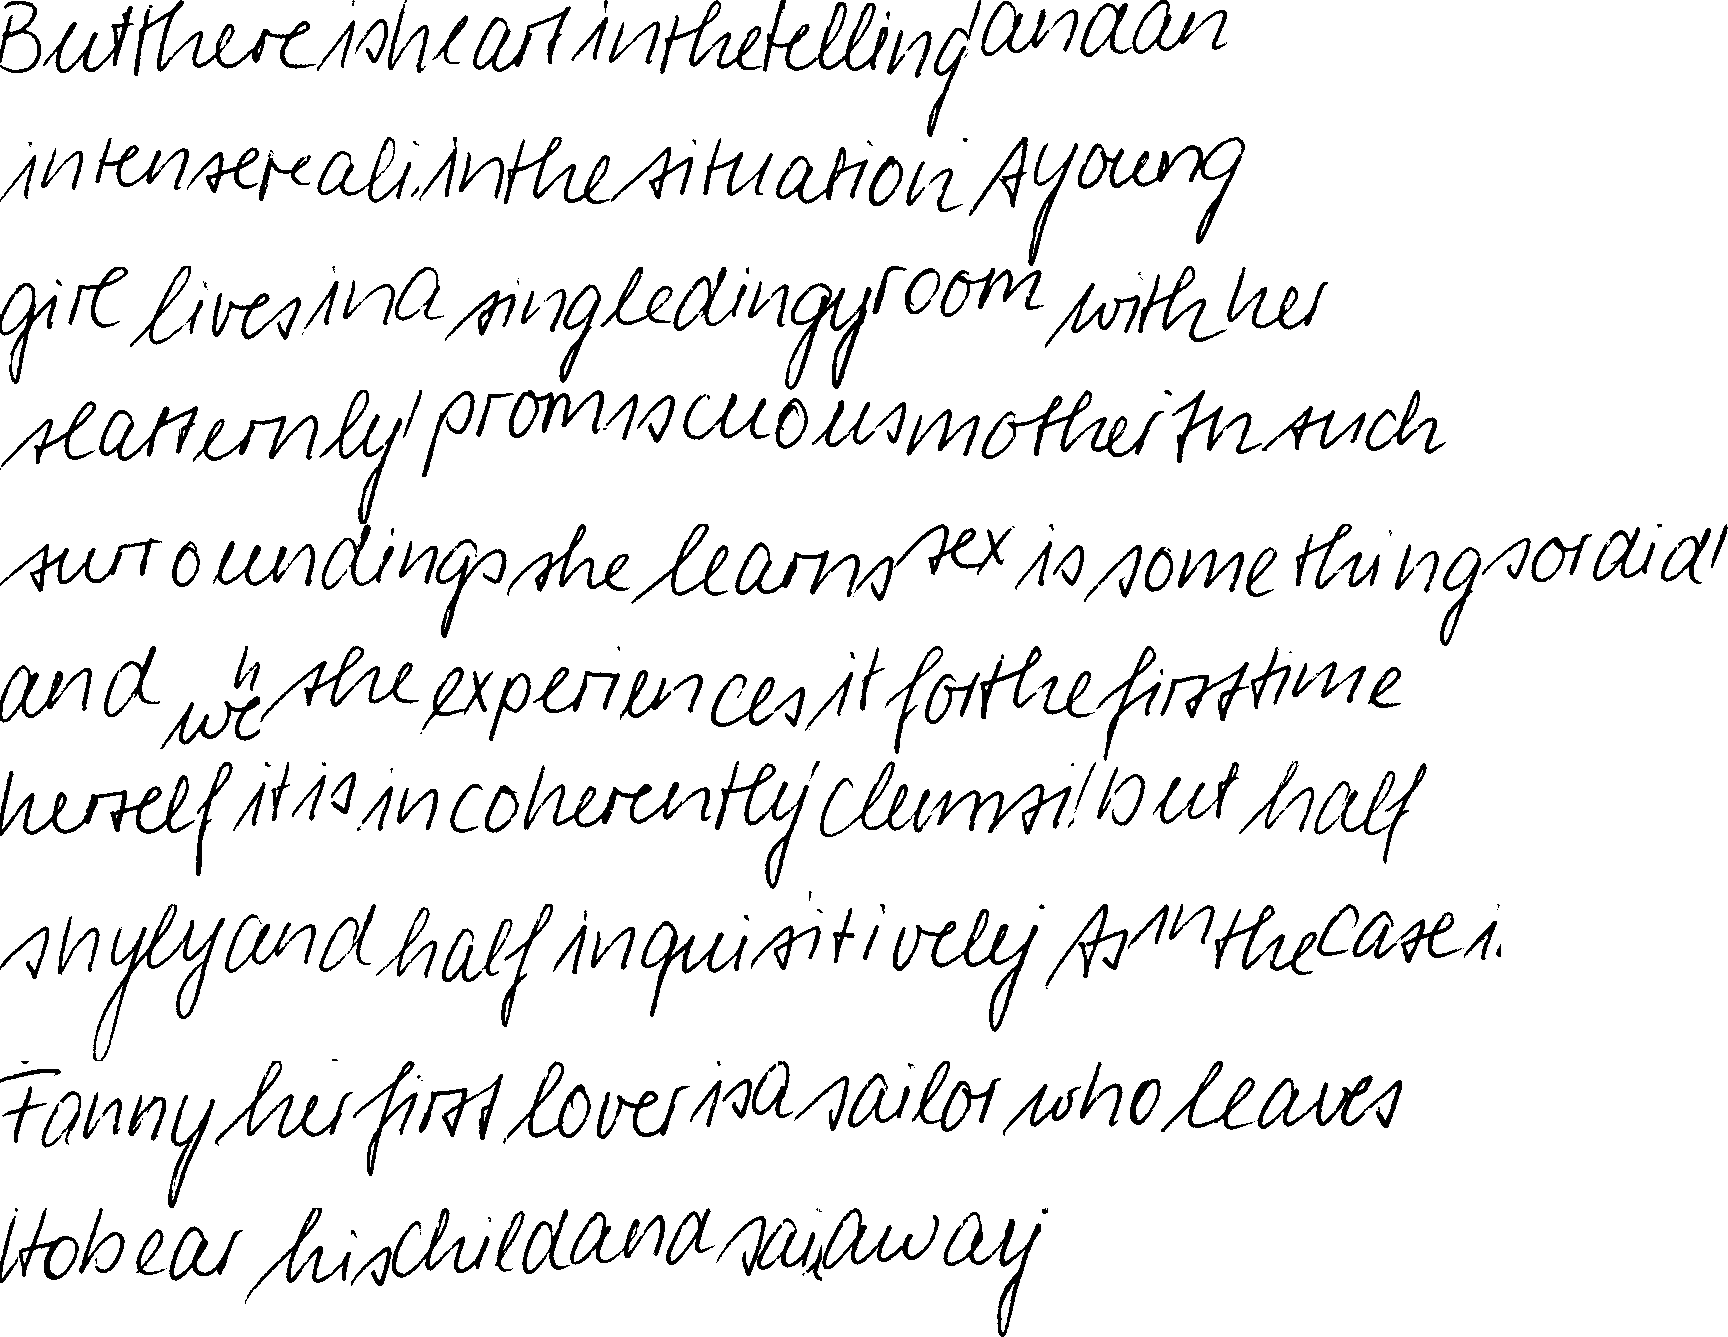 But there is heart in the telling, and an
intense reali. in the situation. A young
girl lives in a single dingy room with her
slatternly, promiscuous mother. In such
surroundings she learns sex is something sordid,
and she experiences it for the first time
herself it is incoherently, clumsi, but half
shyly and half inquisitively. As in the case i.
Fanny her first lover is a sailor who leaves
to bear his child and away